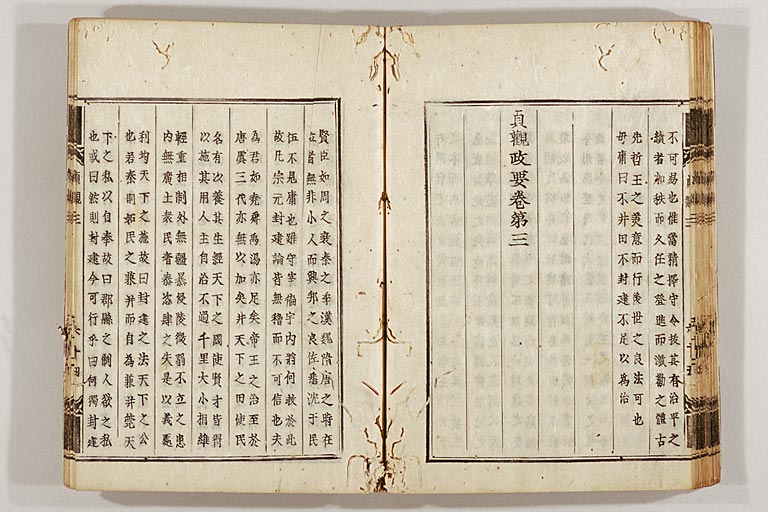 不可易也惟當精擇守令拔其有治平之
績者加秩而久任之登進而激勸之體古
先哲王之美意而行後世之良法可也
毋庸曰不井田不封建不足以為治
貞觀政要卷第三
賢臣如周之衰秦之季漢魏隋唐之時在
位皆無非小人而興邦之良佐悉沈于民
伍不是庸也雖守宰徧宇内若何救於此
故凡宗元封建論皆無稽而不可信也夫
為君如堯舜禹湯亦足矣帝王之治至於
唐虞三代亦無以加矣井天下之田使民
各有以養其生經天下之國使賢才皆得
以施其用人主自治不過千里大小相維
輕重相制外無疆暴侵陵微弱不立之患
内無廣土衆民奢泰恣肆之失是以義處
利均天下之施故曰封建之法天下之公
也若秦則如民之兼并而自為兼并天
下之私以自奉故曰郡縣之制人欲之私
也或曰然則封建今可行乎曰何獨封建